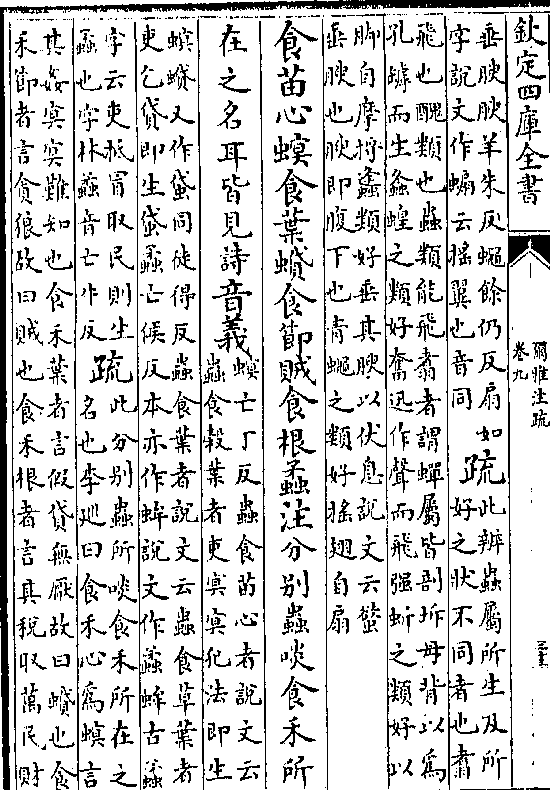 欽定四庫全書
爾雅注疏
卷九
垂腴腴羊朱反蠅餘仍反扇如
字說文作蝙云搖翼也音同
疏
此辨蟲屬所生及所
好之狀不同者也翥
飛也醜類也蟲類能飛翥者謂蟬屬皆剖坼母背以為
孔罅而生螽蝗之類好奮迅作聲而飛强蚚之類好以
脚自摩捋蠭類好垂其腴以伏息說文云螸
垂腴也腴即腹下也青蠅之類好搖翅自扇
食苗心螟食葉蟘食節賊食根蟊注分別蟲啖食禾所
在之名耳皆見詩音義
螟亡丁反蟲食苗心者說文云
蟲食穀葉者吏冥冥犯法即生
螟蟘又作蚮同徒得反蟲食葉者說文云蟲食草葉者
吏乞貸即生蚮蟊亡候反本亦作蛑說文作蟊蛑古蟊
字云吏抵冒取民則生
蟊也字林蟊音亡牛反
疏
此分別蟲所啖食禾所在之
名也李巡曰食禾心為螟言
其姦冥冥難知也食禾葉者言假貸無厭故曰蟘也食
禾節者言貪狼故曰賊也食禾根者言其稅取萬民財